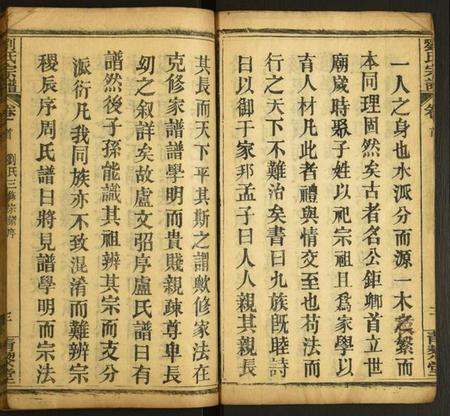 一人之身也水派分而源一木之繁而
本同理固然矣古者名公鉅卿首立世
廟歲時聚子姓以祀宗祖且爲家學以
育人材凡此者禮與情交至也苟法而
行之天下不難治矣書曰九族既睦詩
曰以御于家邦孟子曰人人親其親長
其長而天下平其斯之謂歟修家法在
克修家譜譜學明而貴賤親疎尊卑長
幼之叙詳矣故盧文弨序盧氏譜曰有
譜然後子孫能識其祖辨其宗而支分
派衍凡我同族亦不致混淆而難辨宗
稷辰序周氏譜曰將見譜學明而宗法
劉氏宗譜 卷首 劉氏三修宗譜序 三 青藜堂